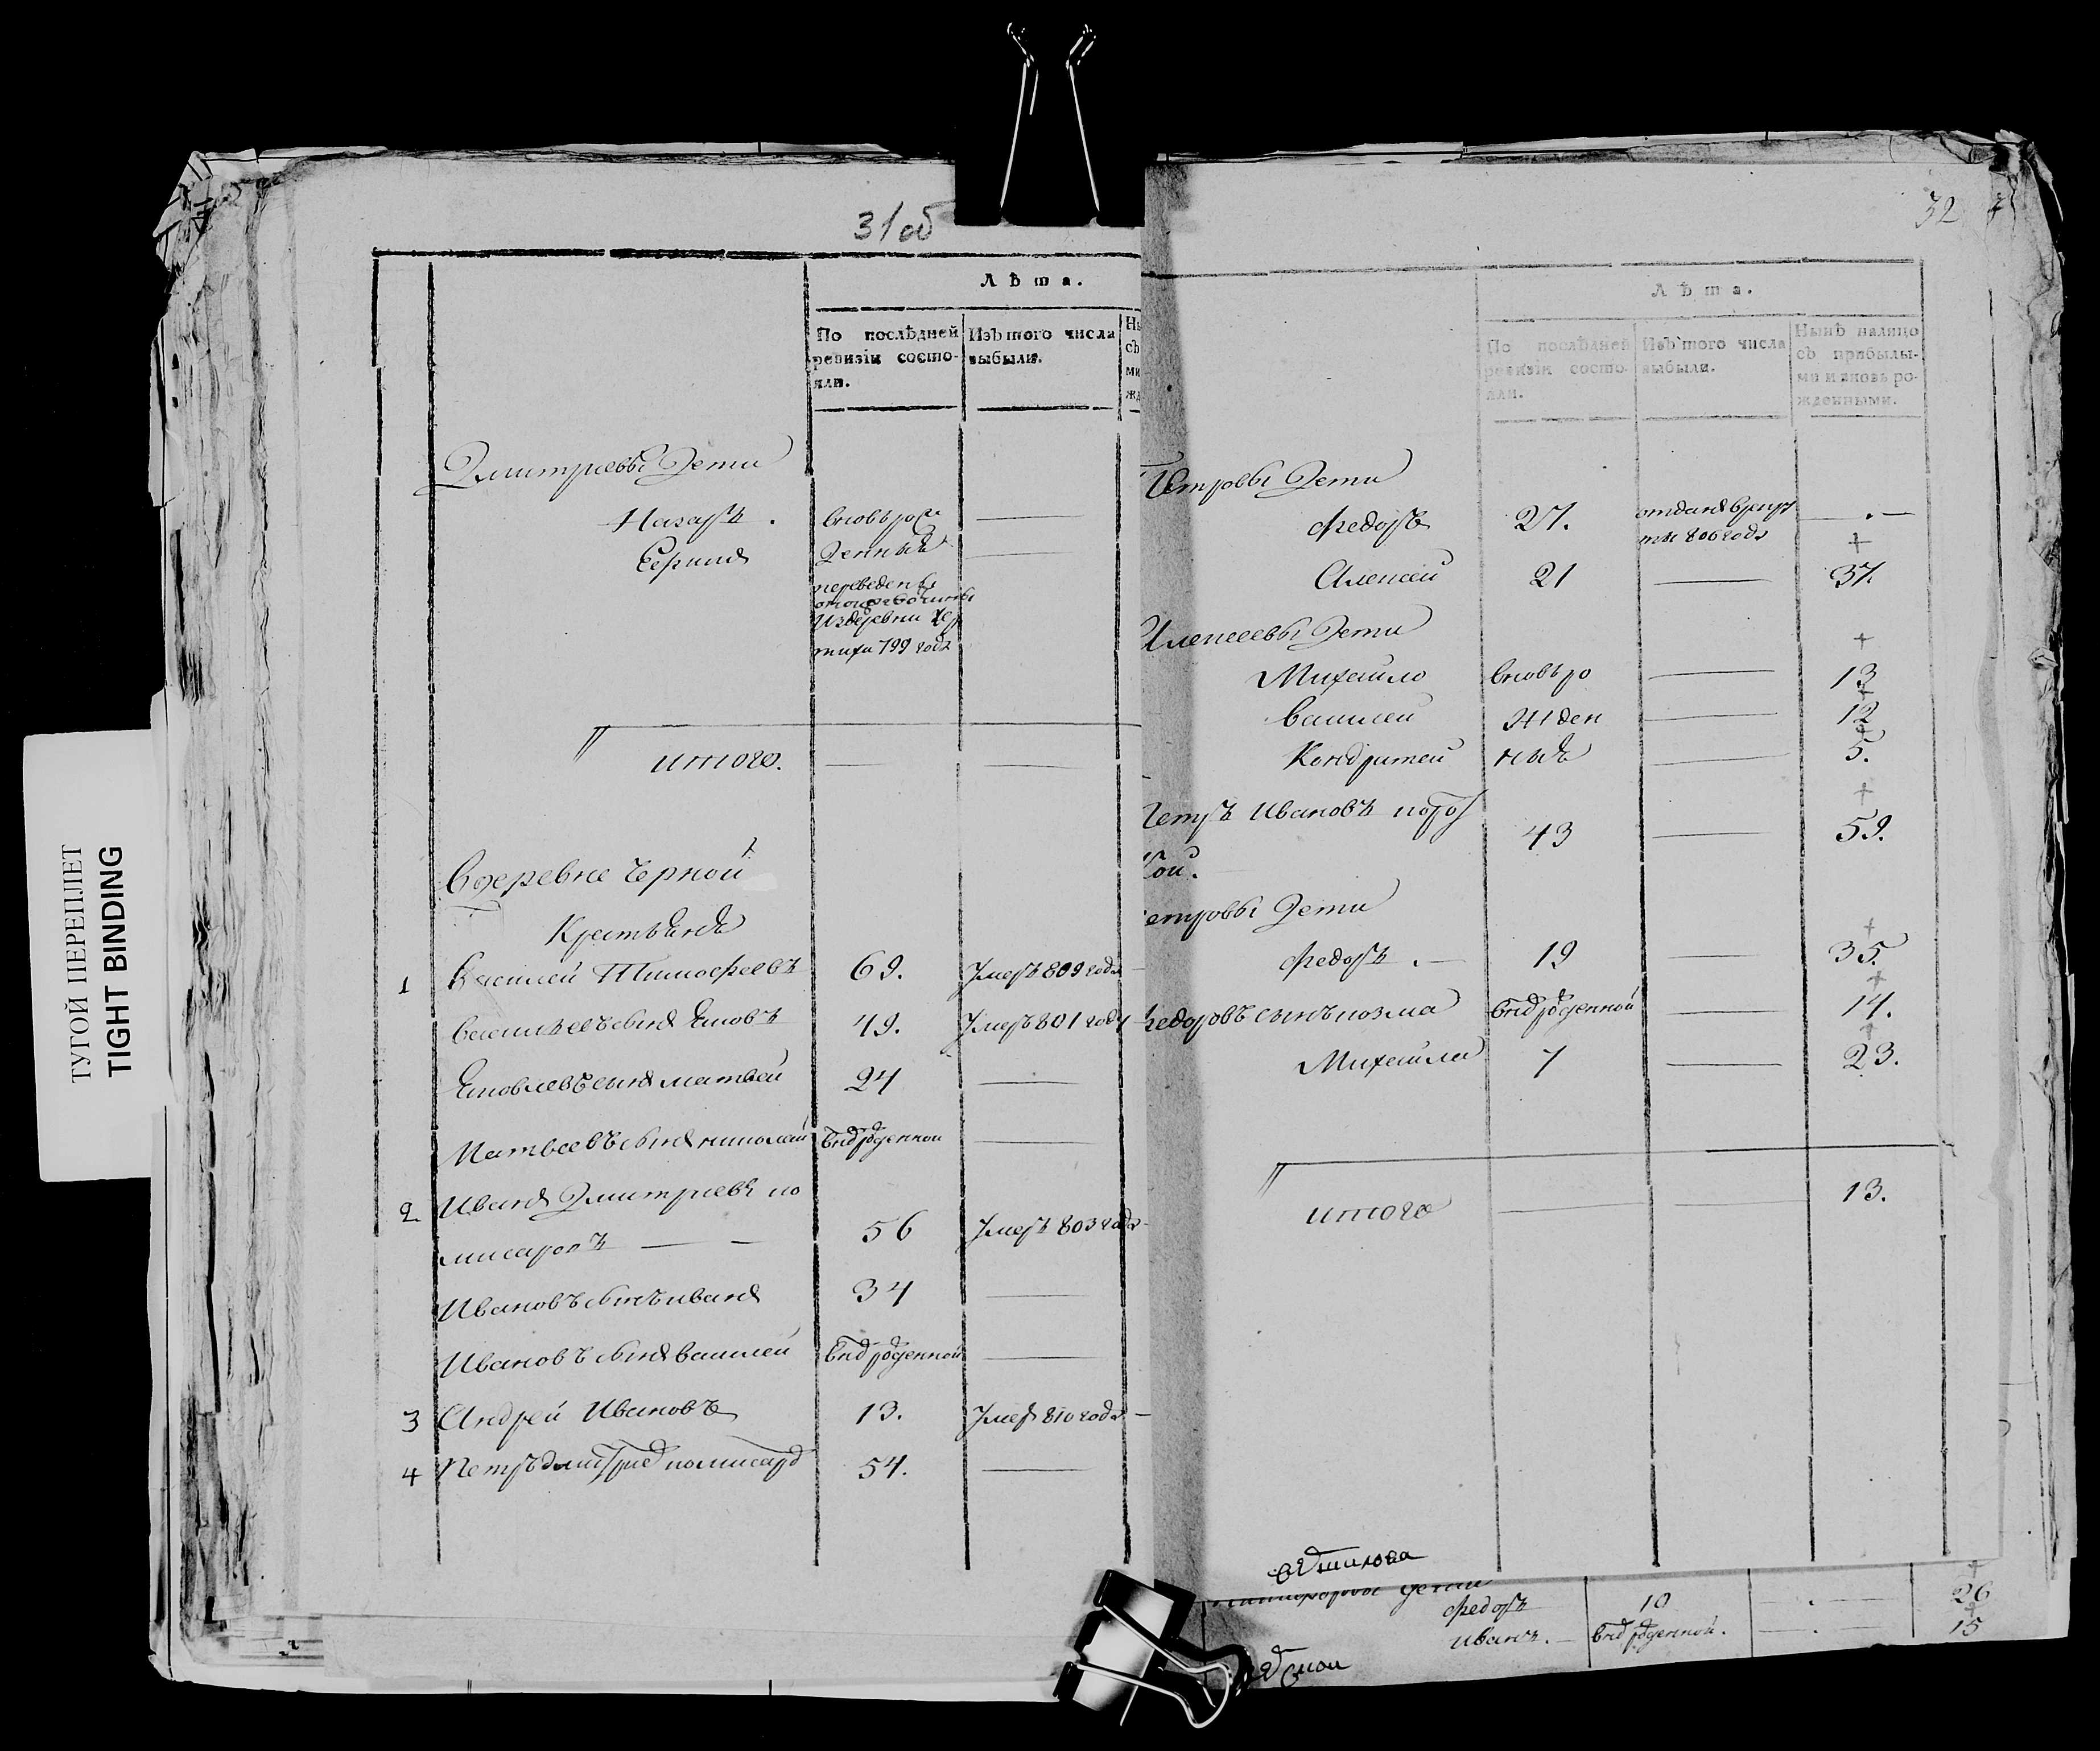 ТУГОЙ ПЕРЕПЛЕТ
TIGHT BINDING
31об
Лѣта.
По послѣдней ревизіи состояли.
Изъ того числа выбыли.
Дмитриевы Дети
Назаръ .
вновърож
Сергей
денныя
переведены
из деревни
799 года
итого.
Вдеревне черной
Крестьянъ
1 Василей Тимофеевъ 69. Умеръ 809 года
васильевъ сынъ Яковъ 49. Умеръ 801 году
Яковлевъ сынъ матвей 24
Матвеевъ сынъ николай внов рожденной
2 Иванъ Дмитриевъ ко
мисаровъ 56 Умеръ 803 года
Ивановъ сынъ иванъ 34
Ивановъ сынъ василей внов рожденной
3 Андрей Ивановъ 13. Умеръ 810 года
4 Петръ дмитриев комисаров 54.
32
Лѣта.
По послѣдней ревизіи состояли.
Изъ того числа выбыли.
Нынѣ налицо съ прибылыми и вновь рожденными.
Петровы Дети
федоръ 27. отданъ в рекру
ты 806 года
Алексей 21 37.
Алексеевы Дети
Михайло вновъ ро 13
василей жден 12
Кондратей ныя 5.
Петръ Ивановъ 43 59.
етровы Дети
федоръ . 19 35.
федоровъ сынъ козма внов рожденной 14.
Михайла 7 23.
итого 13.
дети
федоръ 10 26
иванъ. внов рожденной. 15